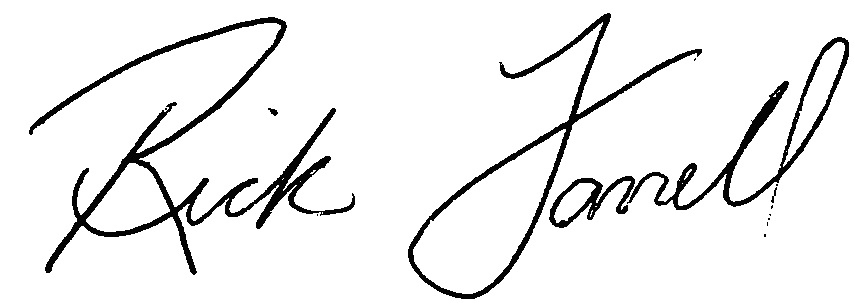 Rick Farrell